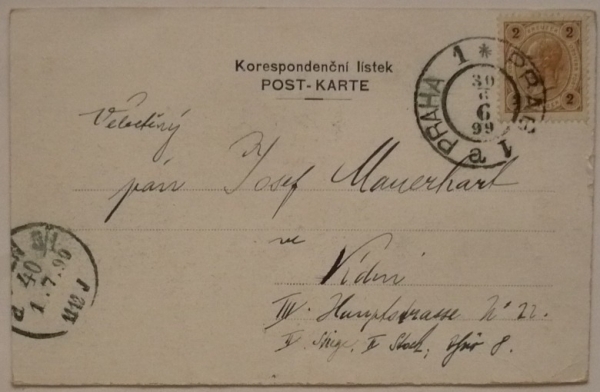 Korespondenční lístek
POST-KARTE
2 2
2 2
PRAHA 1 * PRAG 1
30
6
99
Velectěný
pán Josef Mauerhart
ve
Vídni
III. Hauptstrasse N° 22.
II Stiege, II Stock, Thür 8.
40
1.7.99